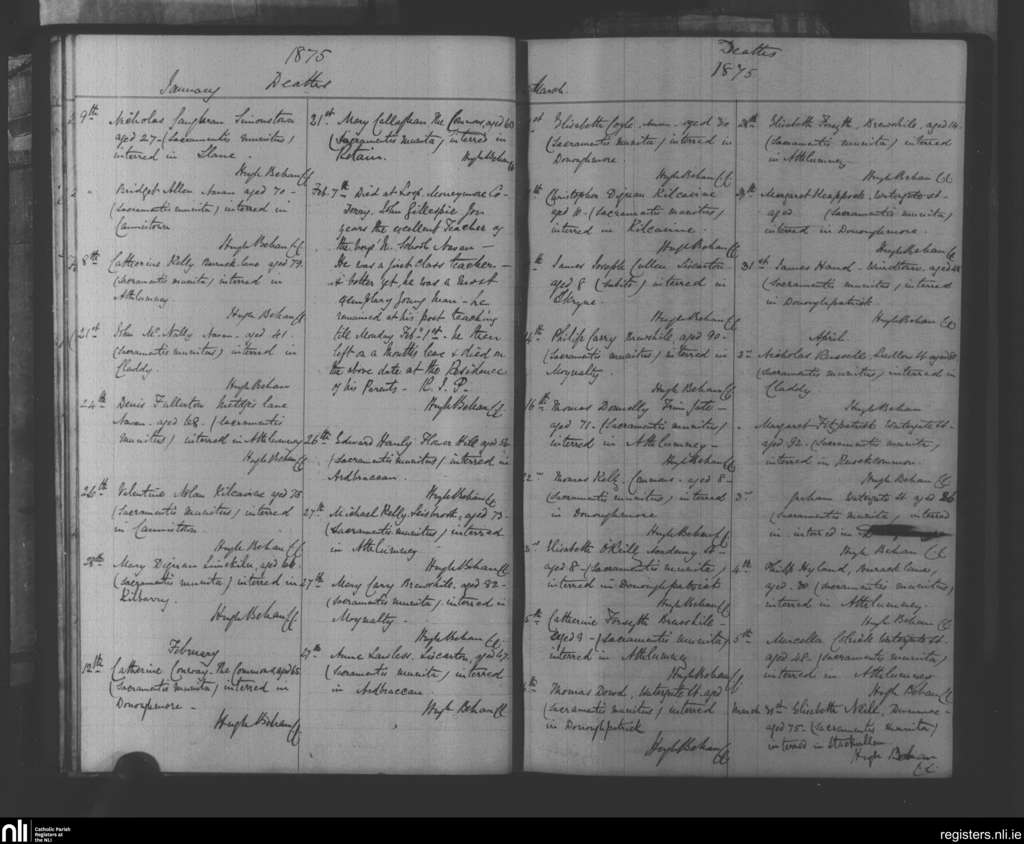 1875
January Deaths
9th Nicholas Simonstown
aged 27 - (Sacramentis munitus)
interred in Slane.
Hugh Behan CC
" Bridget Allen Navan aged 70 -
(Sacramentis munita) interred in
Cannistown
Hugh Behan CC
8th Catherine Kelly Barrack lane aged 79.
(Sacramentis munita) interred in
Athlumney
Hugh Behan CC
21st John McNally Navan. aged 41.
(Sacramentis munitus) interred in
Claddy.
Hugh Behan
24th Denis Fullerton lane
Navan. aged 68. (Sacramentis
munitus) interred in Athlumney
Hugh Behan CC
26th Valentine Nolan Kilcarne aged 78
(Sacramentis munitus) interred
in Cannistown
Hugh Behan CC
28th Mary Dignan Limekiln, aged 66.
(Sacramentis munita) interred in
Hugh Behan CC
February
12th Catherine Conway. The Commons, aged 65.
(Sacramentis munita) interred in
Donoughmore -
Hugh Behan CC
21st Mary Callaghan The Commons, aged 60
(Sacramentis munita) interred in
Hugh Behan CC
Feb. 7th Died at Moneymore Co
Derry. John Gillespie for
years the excellent Teacher of
the School Navan -
He was a first class teacher -
& better yet, he was a most
exemplary young man - he
remained at his post teaching
till Monday Feb. 1st - he then
left on a months leave & died on
the above date at the Residence
of his Parents - R. I. P.
Hugh Behan CC
26th Edward Hanly Flower Hill, aged
(Sacramentis munitus) interred in
Ardbraccan.
Hugh Behan CC
27th Michael Kelly, aged 73 -
(Sacramentis munitus) interred
in Athlumney
Hugh Behan CC
27th Mary Carry Brewshill. aged 82 -
(Sacramentis munita) interred in
Moynalty.
Hugh Behan CC
27th Anne Lawless. Liscarton, aged 67.
(Sacramentis munita) interred
in Ardbraccan.
Hugh Behan CC
Deaths
1875
March
1st Elisabeth Coyle Navan aged 30
(Sacramentis munita) interred in
Donoughmore
Hugh Behan CC
Christopher Dignan Kilcairne
aged 11 - (Sacramentis munitus)
interred in Kilcairne.
Hugh Behan CC
James Joseph Cullen Liscarton
aged 8 (subito) interred in
Skryne.
Hugh Behan CC
14th Philip Carry Brewshill, aged 90 -
(Sacramentis munitus) interred in
Moynalty.
Hugh Behan CC
16th Thomas Donnelly Trim gate -
aged 71 - (Sacramentis munitus)
interred in Athlumney -
Hugh Behan CC
22 Thomas Kelly. Commons - aged 8 -
(Sacramentis munitus) interred
in Donoughmore
Hugh Behan CC
Elisabeth O'Reilly Academy St -
aged 8 - (Sacramentis munita)
interred in Donoughpatrick
Hugh Behan CC
Catherine Forsyth Brewshill -
aged 9 - (Sacramentis munita)
interred in Athlumney
Hugh Behan CC
Thomas Dowd, Watergate St. aged
(Sacramentis munitus) interred
in Donoughpatrick
Hugh Behan CC
28th Elisabeth Forsyth, Brewshill, aged 14.
(Sacramentis munita) interred
in Athlumney
Hugh Behan CC
Margaret Watergate St -
aged (Sacramentis munita)
interred in Donoughmore.
Hugh Behan CC
31st James Hand - Windtown, aged
(Sacramentis munitus) interred
in Donoughpatrick.
Hugh Behan CC
April
Nicholas Russell, Ludlow St aged
(Sacramentis munitus) interred in
Claddy
Hugh Behan
" Margaret Fitzpatrick Watergate St -
aged 92 - (Sacramentis munita)
interred in
Hugh Behan CC
Watergate St. aged
(Sacramentis munita) interred
in - interred in
Hugh Behan CC
4th Hyland, Barrack lane,
aged 30 (Sacramentis munitus)
interred in Athlumney.
Hugh Behan CC
5th Watergate St -
aged 48 - (Sacramentis munita)
interred in Athlumney
Hugh Behan CC
March 30th Elisabeth
aged 75 - (Sacramentis munita)
interred in
Hugh Behan
CC
nli Catholic Parish
Registers at
the NLI
registers.nli.ie